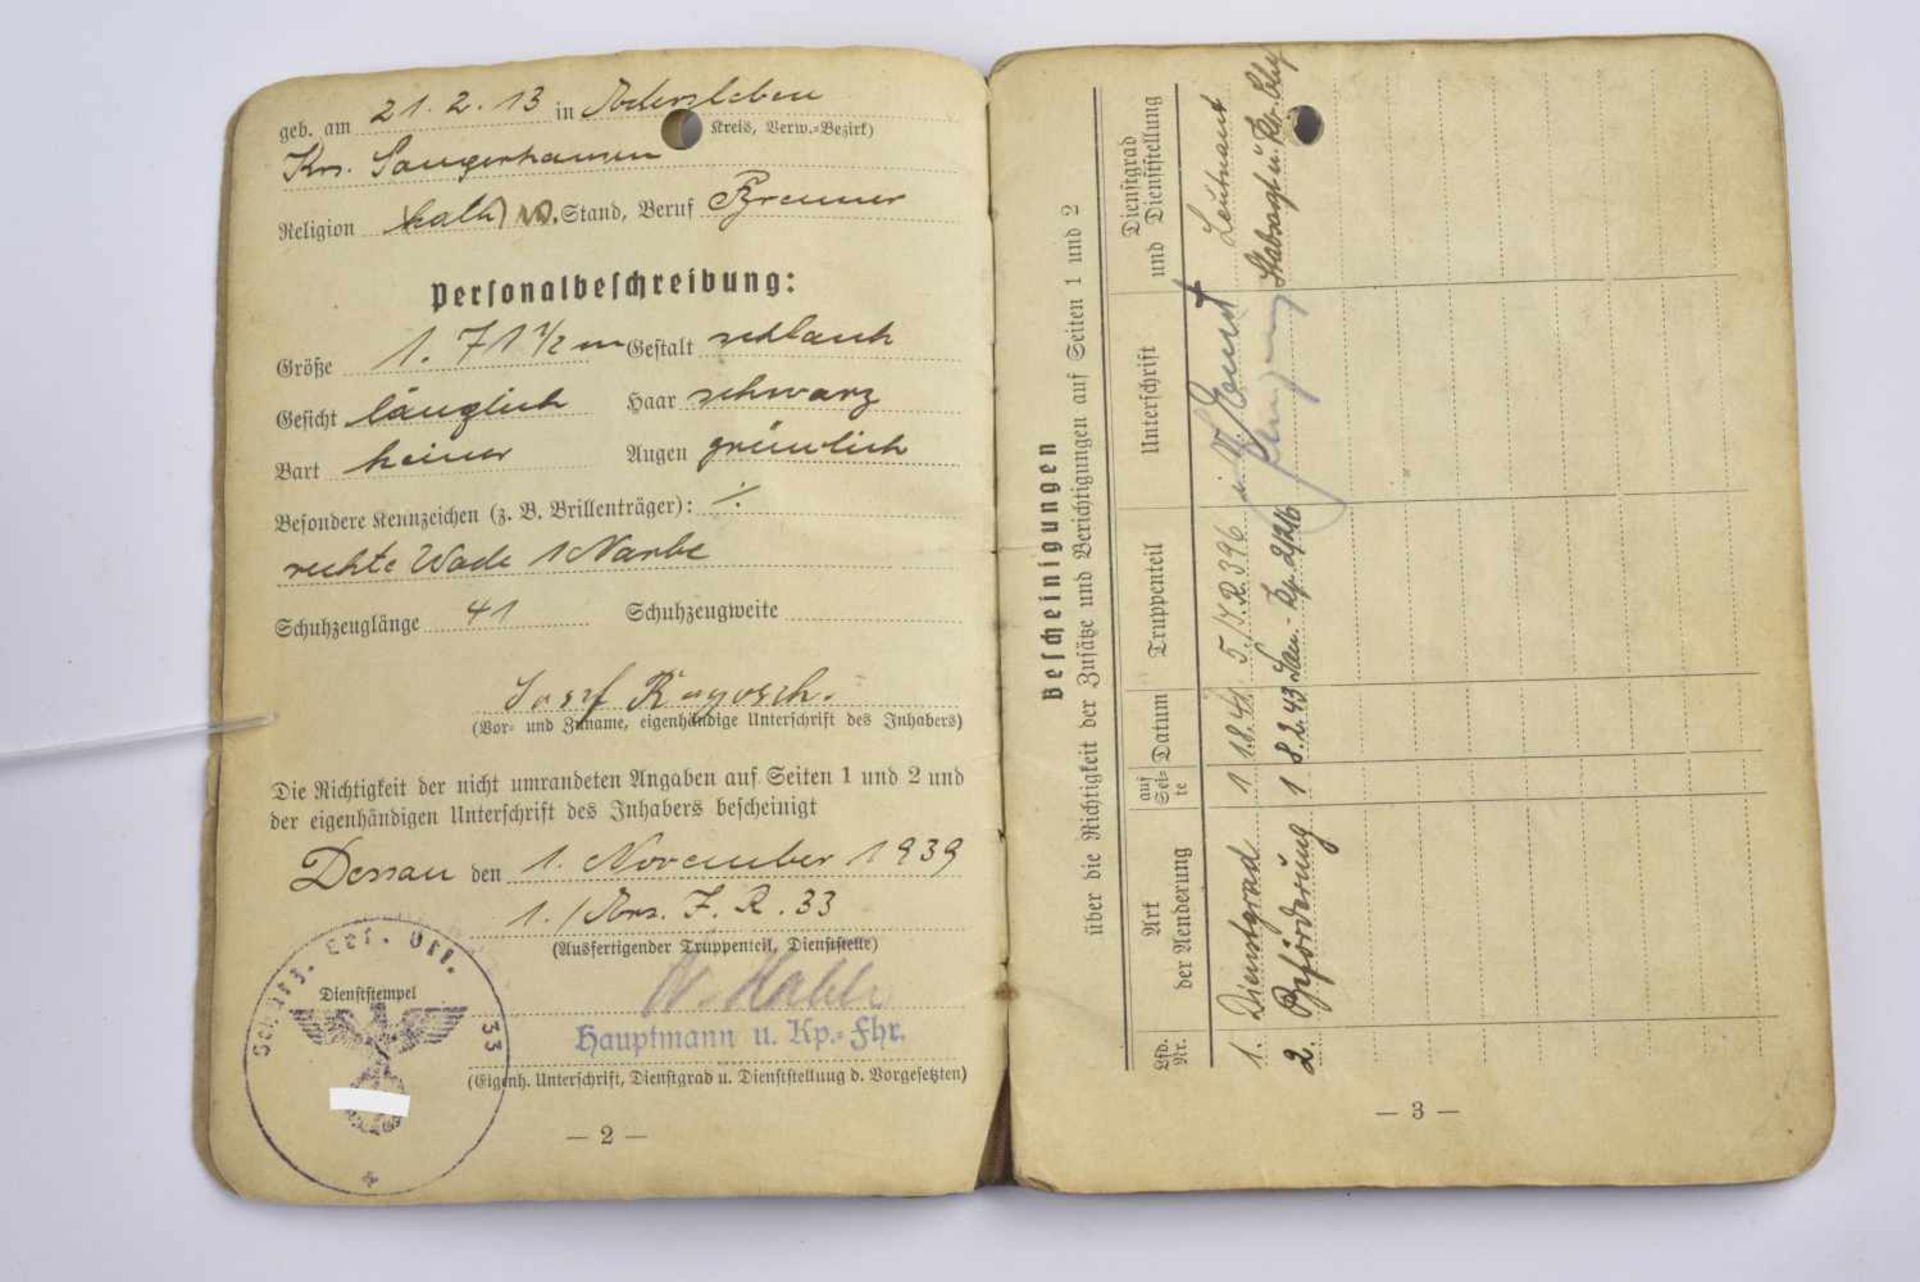 geb. am 21. 2. 13 in
Kreis, Verw.=Bezirk)
Krs. Sangerhausen
Religion kath Stand, Beruf Brenner
Personalbeschreibung:
Größe 1. 71 1/2 m Gestalt schlank
Gesicht länglich Haar schwarz
Bart keiner Augen grünlich
Besondere Kennzeichen (z. B. Brillenträger):
rechte Wade 1 Narbe
Schuhzeuglänge 41 Schuhzeugweite
Josef
(Vor= und Zuname, eigenhändige Unterschrift des Inhabers)
Die Richtigkeit der nicht umrandeten Angaben auf Seiten 1 und 2 und
der eigenhändigen Unterschrift des Inhabers bescheinigt
Dessau den 1. November 1939
1. / Ers. J. R. 33
(Ausfertigender Truppenteil, Dienststelle)
Dienststempel
33
Hauptmann u. Kp.=Fhr.
(Eigenh. Unterschrift, Dienstgrad u. Dienststellung d. Vorgesetzten)
— 2 —
Bescheinigungen
über die Richtigkeit der Zusätze und Berichtigungen auf Seiten 1 und 2
Lfd. Nr. Art der Aenderung auf Sei= te Datum Truppenteil Unterschrift Dienstgrad und Dienststellung
1. Dienstgrad 1 5./J.R. 396 Leutnant
2. Beförderung 1 8.2.43
— 3 —